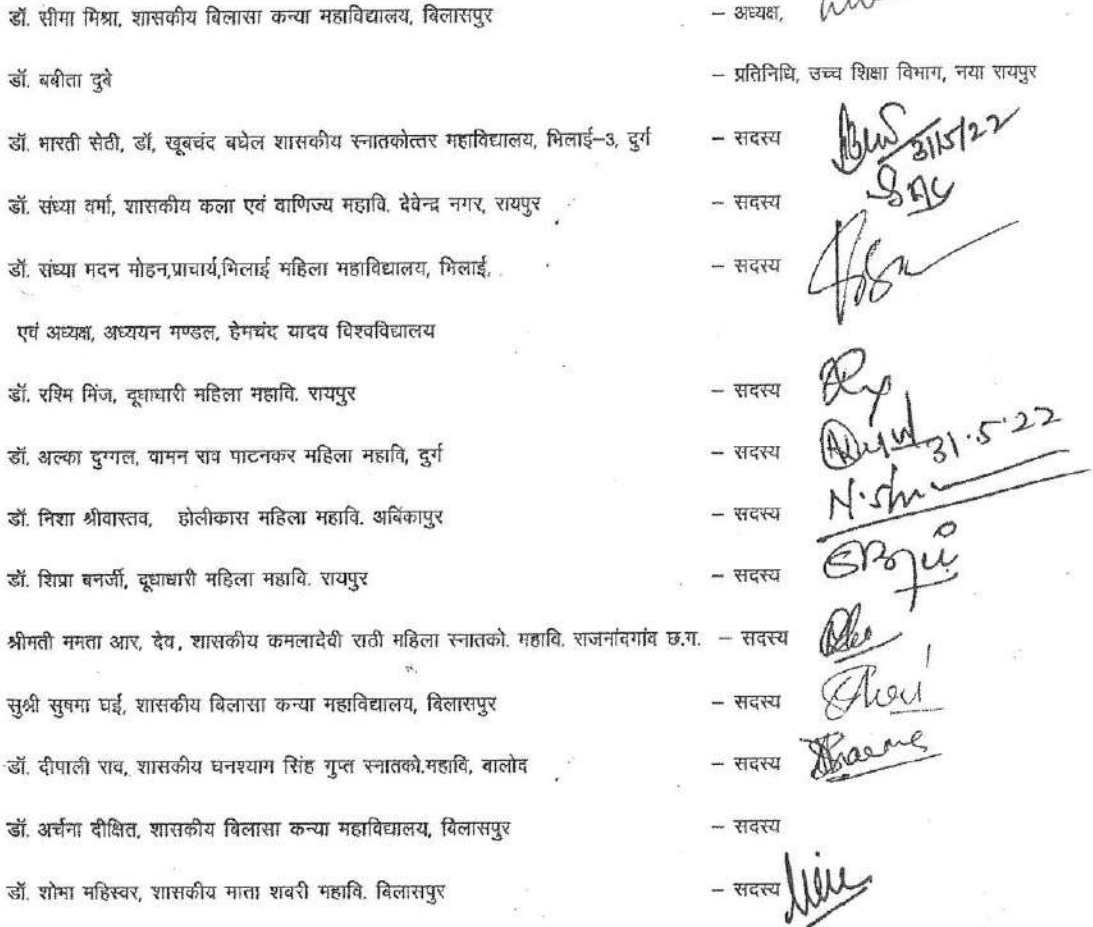 डॉ. सीमा मिश्रा, शासकीय बिलासा कन्या महाविद्यालय, बिलासपुर – अध्यक्ष,
डॉ. बबीता दुबे – प्रतिनिधि, उच्च शिक्षा विभाग, नया रायपुर
डॉ. भारती सेठी, डॉ, खूबचंद बघेल शासकीय स्नातकोत्तर महाविद्यालय, भिलाई–3, दुर्ग – सदस्य 31/5/22
डॉ. संध्या वर्मा, शासकीय कला एवं वाणिज्य महावि. देवेन्द्र नगर, रायपुर – सदस्य
डॉ. संध्या मदन मोहन,प्राचार्य,भिलाई महिला महाविद्यालय, भिलाई, – सदस्य
एवं अध्यक्ष, अध्ययन मण्डल, हेमचंद यादव विश्वविद्यालय
डॉ. रश्मि मिंज, दूधाधारी महिला महावि. रायपुर – सदस्य
डॉ. अल्का दुग्गल, वामन राव पाटनकर महिला महावि, दुर्ग – सदस्य 31.5.22
डॉ. निशा श्रीवास्तव, होलीकास महिला महावि. अबिंकापुर – सदस्य
डॉ. शिप्रा बनर्जी, दूधाधारी महिला महावि. रायपुर – सदस्य
श्रीमती ममता आर, देव, शासकीय कमलादेवी राठी महिला स्नातको. महावि. राजनांदगांव छ.ग. – सदस्य
सुश्री सुषमा घई, शासकीय बिलासा कन्या महाविद्यालय, बिलासपुर – सदस्य
डॉ. दीपाली राव, शासकीय घनश्याम सिंह गुप्त स्नातको.महावि, बालोद – सदस्य
डॉ. अर्चना दीक्षित, शासकीय बिलासा कन्या महाविद्यालय, बिलासपुर – सदस्य
डॉ. शोमा महिस्वर, शासकीय माता शबरी महावि. बिलासपुर – सदस्य